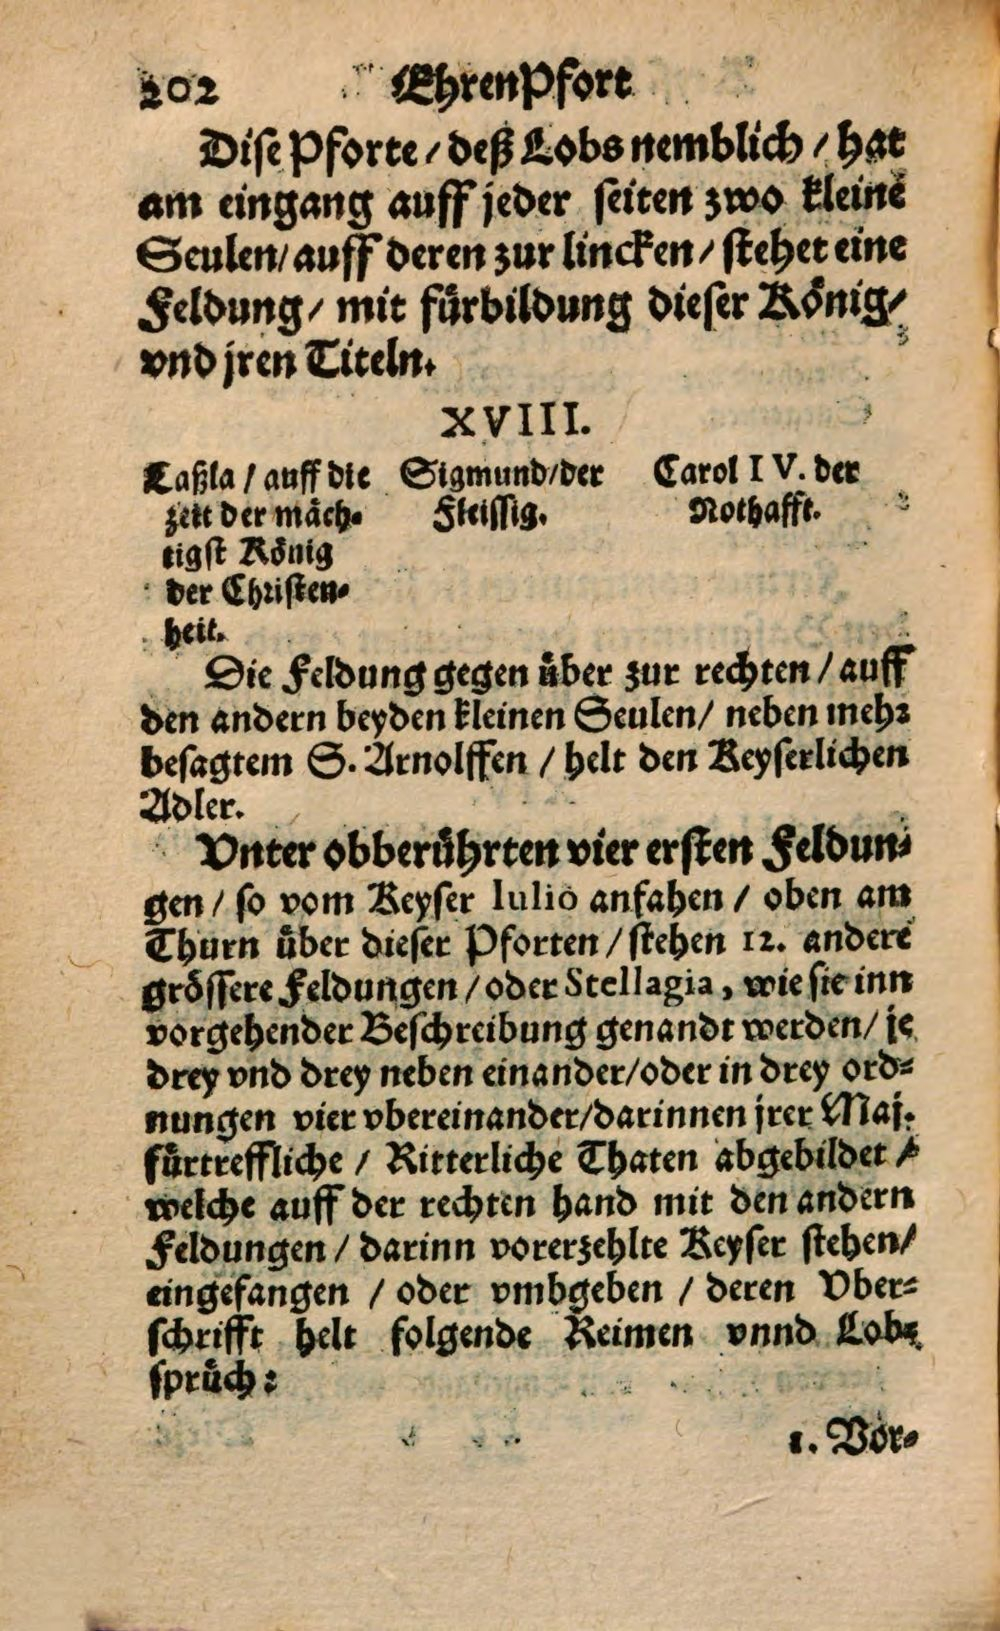 202 EhrenPfort
Dise Pforte / deß Lobs nemblich / hat
am eingang auff jeder seiten zwo kleine
Seulen / auff deren zur lincken / stehet eine
Feldung / mit fürbildung dieser König /
vnd jren Titeln.
XVIII.
Laßla / auff die zeit der mäch-
tigst König
der Christen-
heit.
Sigmund / der
Fleissig.
Carol IV. der
Nothafft.
Die Feldung gegen über zur rechten / auff
den andern beyden kleinen Seulen / neben mehr
besagtem S. Arnolffen / helt den Keyserlichen
Adler.
Vnter obberührten vier ersten Feldun-
gen / so vom Keyser Iulio anfahen / oben am
Thurn über dieser Pforten / stehen 12. andere
grössere Feldungen / oder Stellagia, wie sie inn
vorgehender Beschreibung genandt werden / je
drey vnd drey neben einander / oder in drey ord-
nungen vier vbereinander / darinnen jrer Maj.
fürtreffliche / Ritterliche Thaten abgebildet /
welche auff der rechten hand mit den andern
Feldungen / darinn vorerzehlte Keyser stehen /
eingefangen / oder vmbgeben / deren Vber-
schrifft helt folgende Reimen vnnd Lob-
sprüch:
1. Vor-